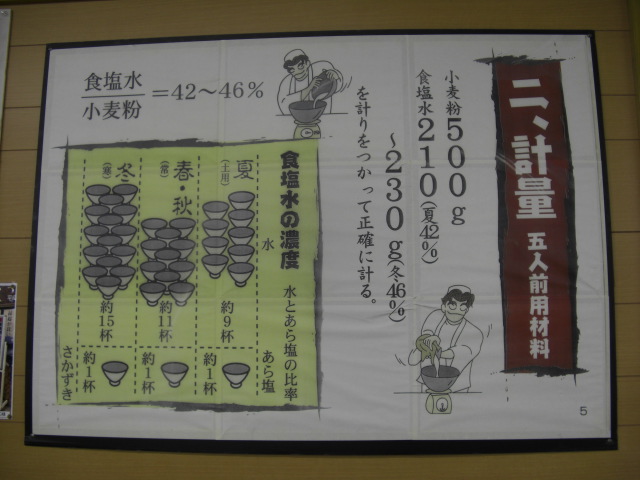 二、計量 五人前用材料
小麦粉500g
食塩水210(夏42%)
〜230g(冬46%)
を計りをつかって正確に計る。
食塩水
小麦粉
=42〜46%
食塩水の濃度 水とあら塩の比率
水 あら塩
夏(土用) 約9杯 約1杯
春・秋(常) 約11杯 約1杯
冬(寒) 約15杯 約1杯
さかずき
5